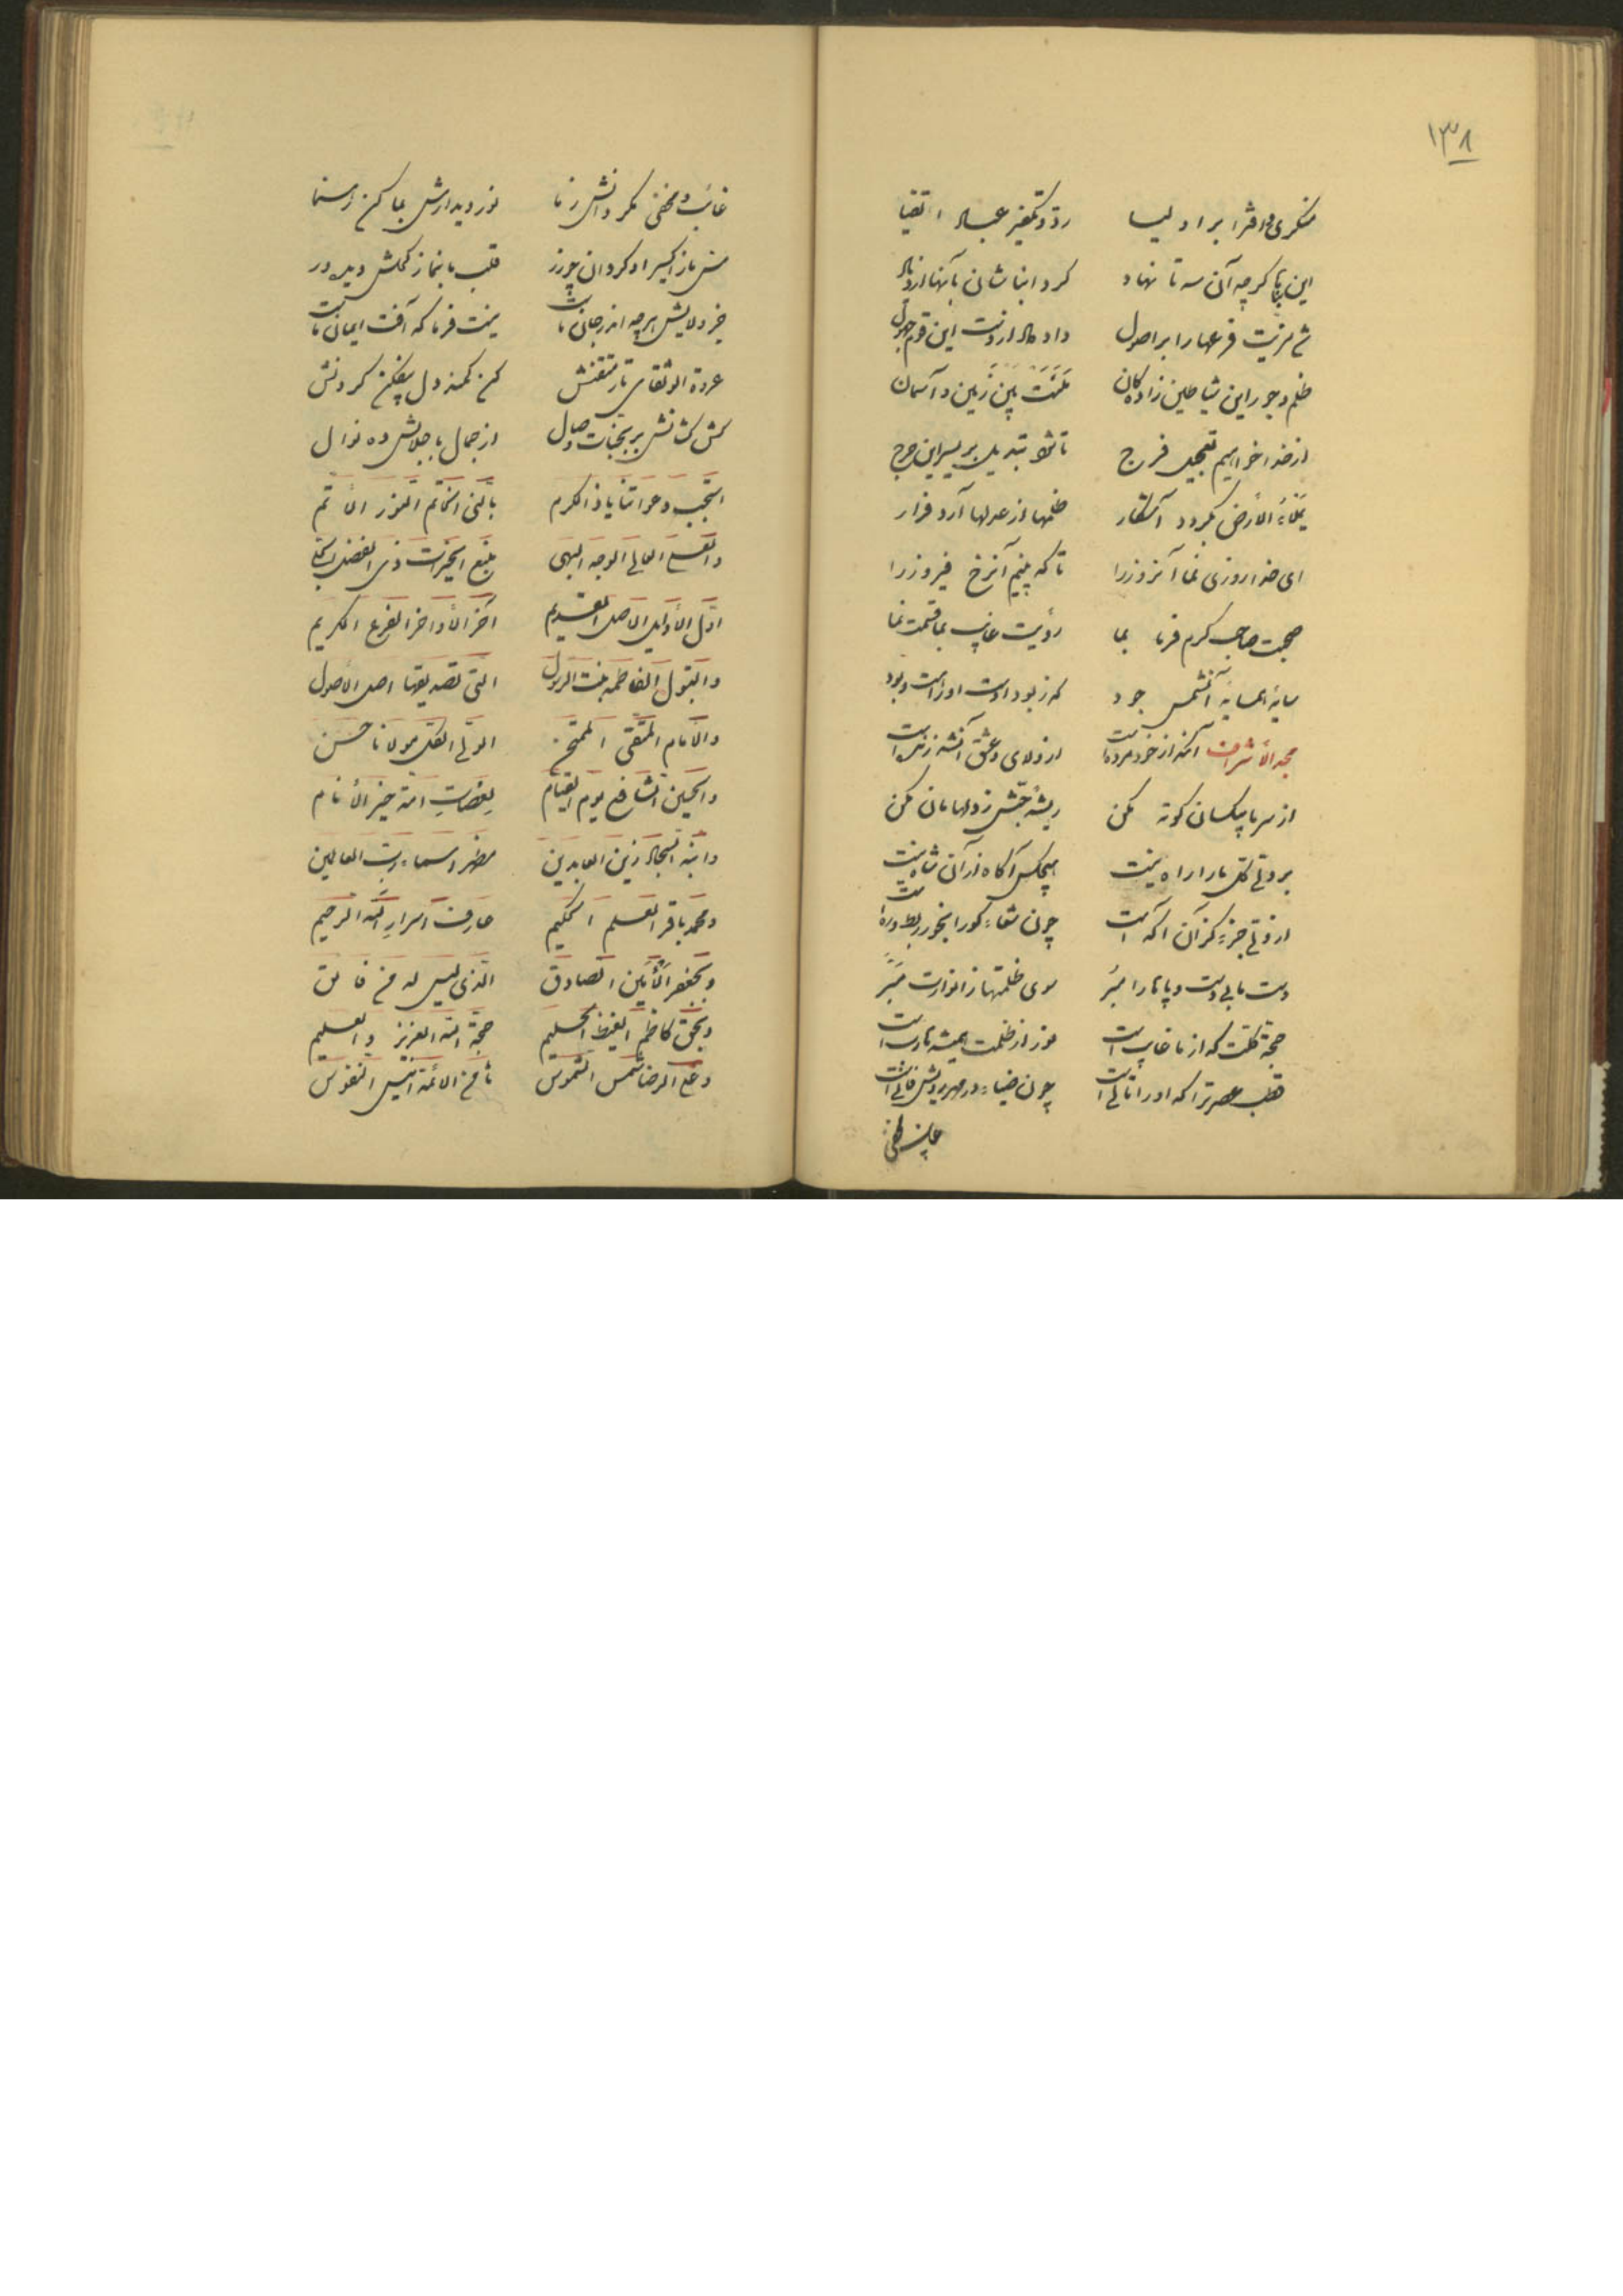 ۱۳۸
منکری و افترا بر اولیا رد و تکفیر عباد اتقیا
این بنا گرچه آن سه تا نهاد کرد ابناشان بآنها ازدیاد
شد مزیت فرعها را بر اصول داد داد از دست این قوم جهول
ظلم و جور این شیاطین زادگان ملئت بین زمین و آسمان
از خدا خواهیم تعجیل فرج تا شود تبدیل بر یسر این حرج
یملاء الأرض بگردد آشکار ظلمها از عدلها آرد فرار
ای خدا روزی نما آنروز را تا که بینم آنرخ فیروز را
صحبت صاحب کرم فرما بما رؤیت غایب بما قسمت نما
سایهٔ همسایهٔ آنشمس جود که ز بود اوست او را هست و بود
مجد الأشراف آنکه از خود مرده است از ولای و عشق آنشه زنده است
از سر ما بیکسان کوته مکن ریشهٔ حبش ز دلهامان مکن
بر ولی کل ما را راه نیست هیچکس آگاه از آن شاه نیست
از ولی جزء کز آن آگه است چون شعاء کو را بخور ربط و ره است
دست ما بی دست و پاها را مبر سوی ظلمتها ز انوارت مبر
حجة کلت که از ما غایب است نور از ظلمت همیشه هارب است
قطب عصر ترا که او را تالی است چون ضیاء در مهر رویش فانی است
غایب و مخفی
غائب و مخفی مگردانش ز ما نور دیدارش بما کن رهنما
مس ما ز اکسیر او گردان چو زر قلب ما بنما ز کحلش دیده ور
جز ولایش هر چه اندر جان ماست نیست فرما که آفت ایمان ماست
عروة الوثقای تار متقنش کن کمند دل بیفکن گردنش
کش کشانش بر بجنات وصال از جمال با جلالش ده نوال
استجب دعواتنا یا ذا الکرم بالنبی الخاتم النور الأتم
والعلی العالی الوجه البهی منبع الخیرات ذی الفضل
اول الأولین الاصل القدیم آخر الأواخر الفرع الکریم
والبتول الفاطمه بنت الرسول التی تصدیقها اصل الأصول
والأمام المتقی الممتحن الولی الکل مولانا حسن
والحسین الشافع یوم القیام لعصات امة خیر الأنام
وابنه السجاد زین العابدین مظهر اسماء رب العالمین
ومحمد باقر العلم الحکیم عارف اسرار الله الرحیم
وبجعفر الأمین الصادق الذی لیس له من فائق
وبحق کاظم الغیظ الحلیم حجة الله العزیز والعلیم
وعلی الرضا شمس الشموس ثامن الائمة انیس النفوس